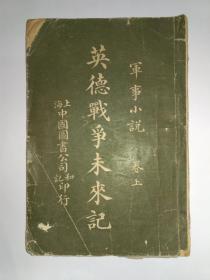 軍事小説 卷上
英德戰爭未來記
上海中國圖書公司和記印行